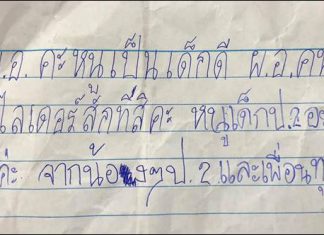 อ. คะหนูเป็นเด็กดี ผ.อ.คะ
ไลเดอร์สักทีสิคะ หนูเด็กป.2อ
ค่ะ จากน้องๆป.2และเพื่อนทุ